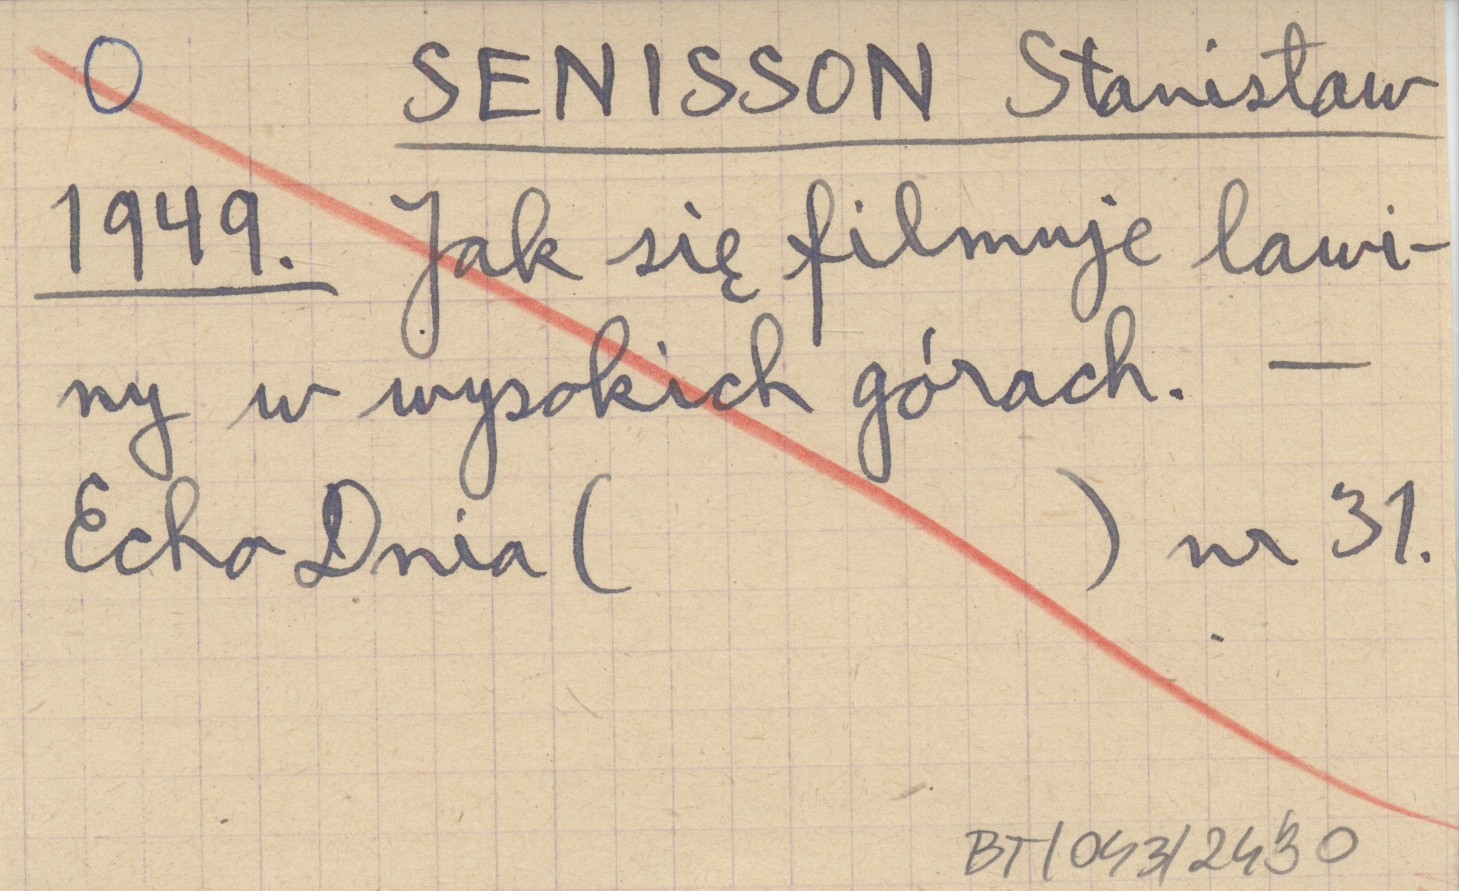 O SENISSON Stanisław
1949. Jak się filmuje lawi-
ny w wysokich górach. —
Echo Dnia ( ) nr 31.
BT/043/2430